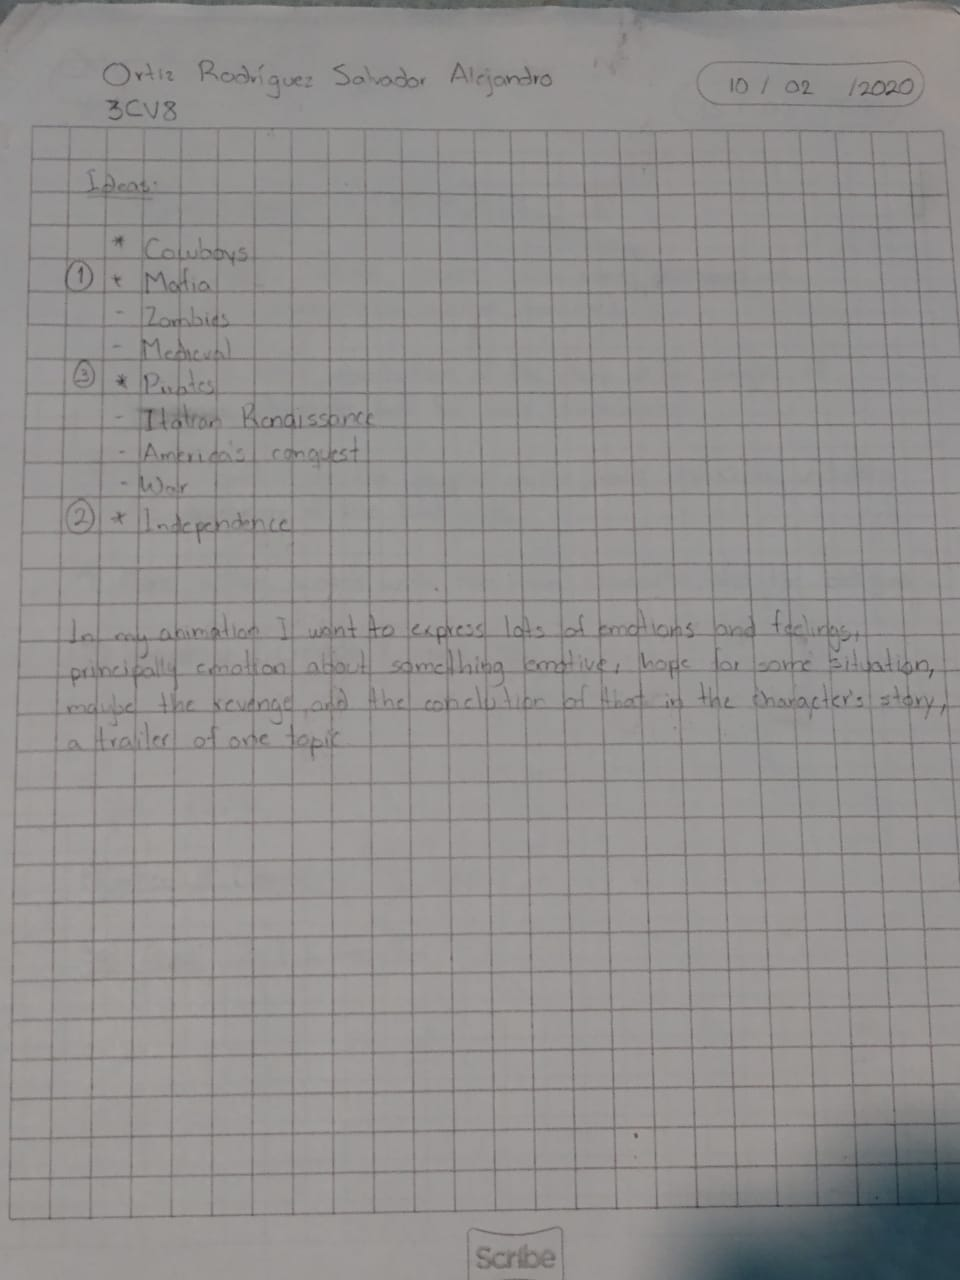 Ortiz Rodríguez Salvador Alejandro
10 / 02 /2020
3CV8
Ideas:
* Cowboys
① * Mafia
- Zombies
- Medieval
③ * Pirates
- Italian Renaissance
- America's conquest
- War
② * Independence
In my animation I want to express lots of emotions and feelings,
principally emotion about something emotive, hope for some situation,
maybe the revenge and the conclution of that in the character's story,
a trailer of one topic
Scribe